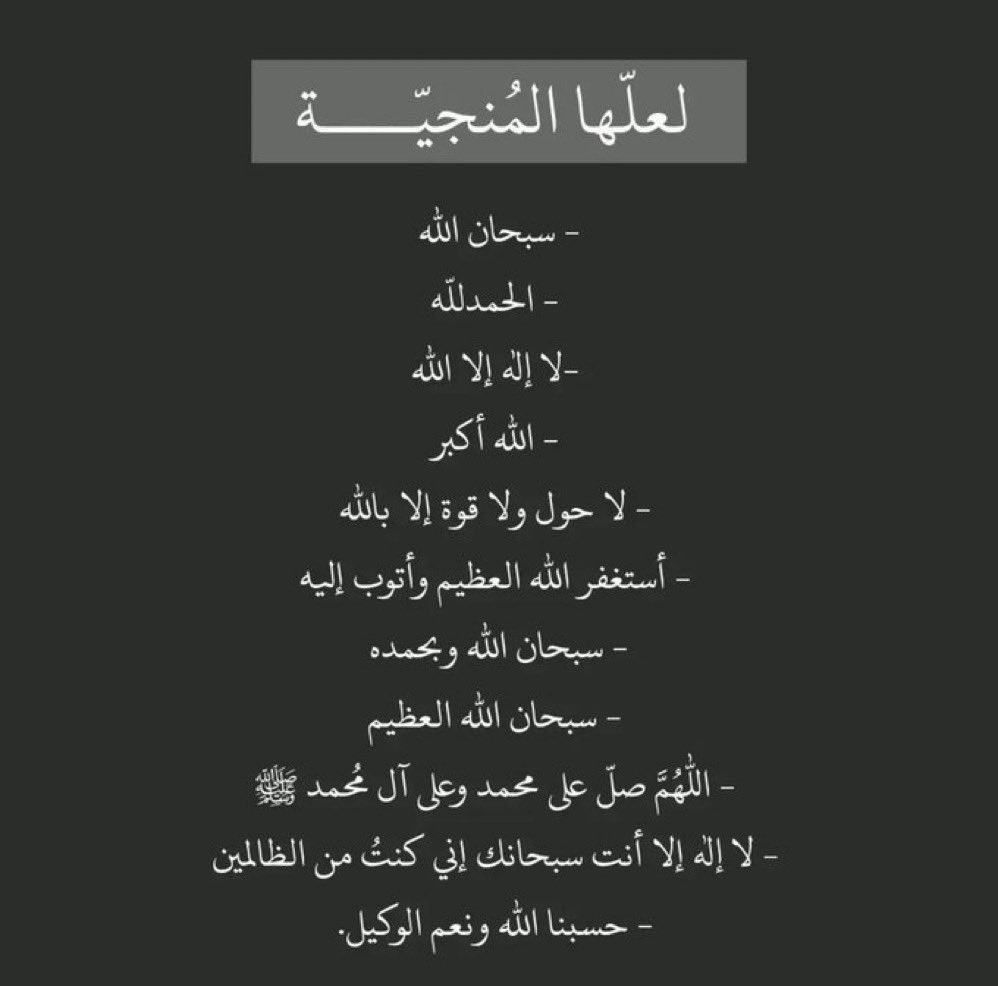 لعلّها المُنجيّـــــــة
- سبحان الله
- الحمدللّه
-لا إلٰه إلا الله
- الله أكبر
- لا حول ولا قوة إلا بالله
- أستغفر الله العظيم وأتوب إليه
- سبحان الله وبحمده
- سبحان الله العظيم
- اللّٰهُمَّ صلّ على محمد وعلى آل مُحمد ﷺ
- لا إلٰه إلا أنت سبحانك إني كنتُ من الظالمين
- حسبنا الله ونعم الوكيل.